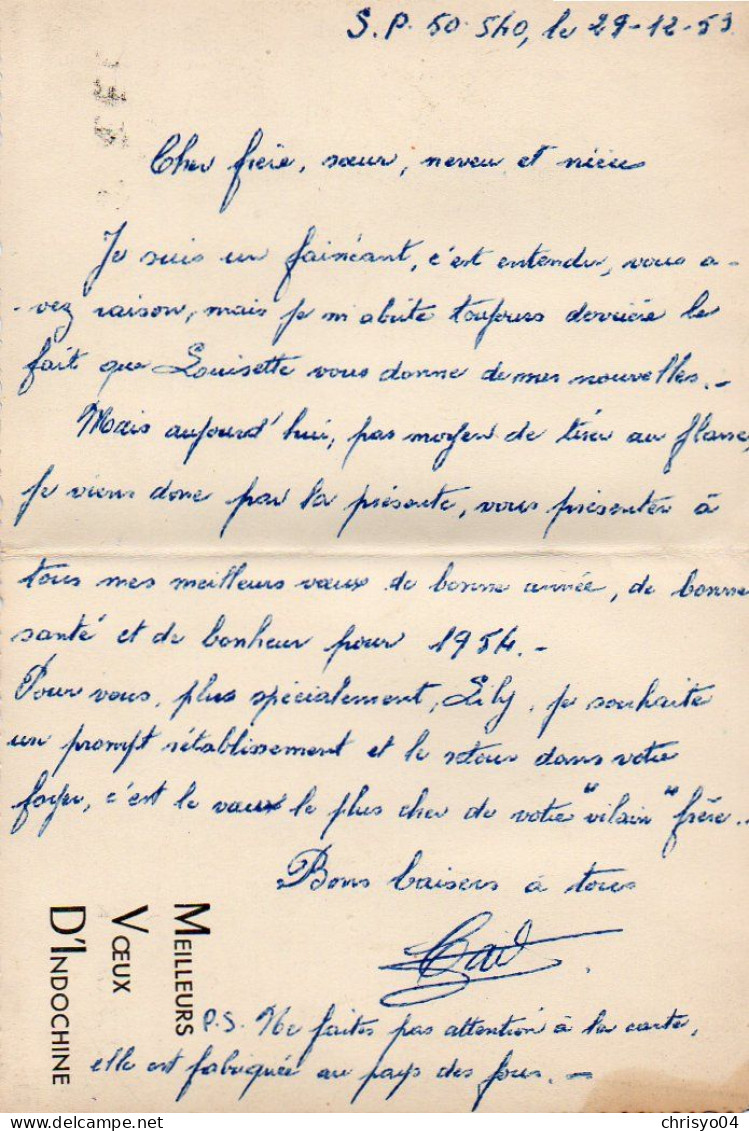 S.P. 50.540, le 29-12-53
Cher frère, sœur, neveu et nièce
Je suis un fainéant, c'est entendu, vous a-
-vez raison, mais je m'abrite toujours derrière le
fait que Louisette vous donne de mes nouvelles.-
Mais aujourd'hui, pas moyen de tirer au flanc,
je viens donc par la présente, vous présenter à
tous mes meilleurs vœux de bonne année, de bonne
santé et de bonheur pour 1954.-
Pour vous, plus spécialement, Lily, je souhaite
un prompt rétablissement et le retour dans votre
foyer, c'est le vœux le plus cher de votre "vilain" frère.
Bons baisers à tous
MEILLEURS
VŒUX
D'INDOCHINE
P.S. Ne faites pas attention à la carte,
elle est fabriquée au pays des fous.-
chrisyo04